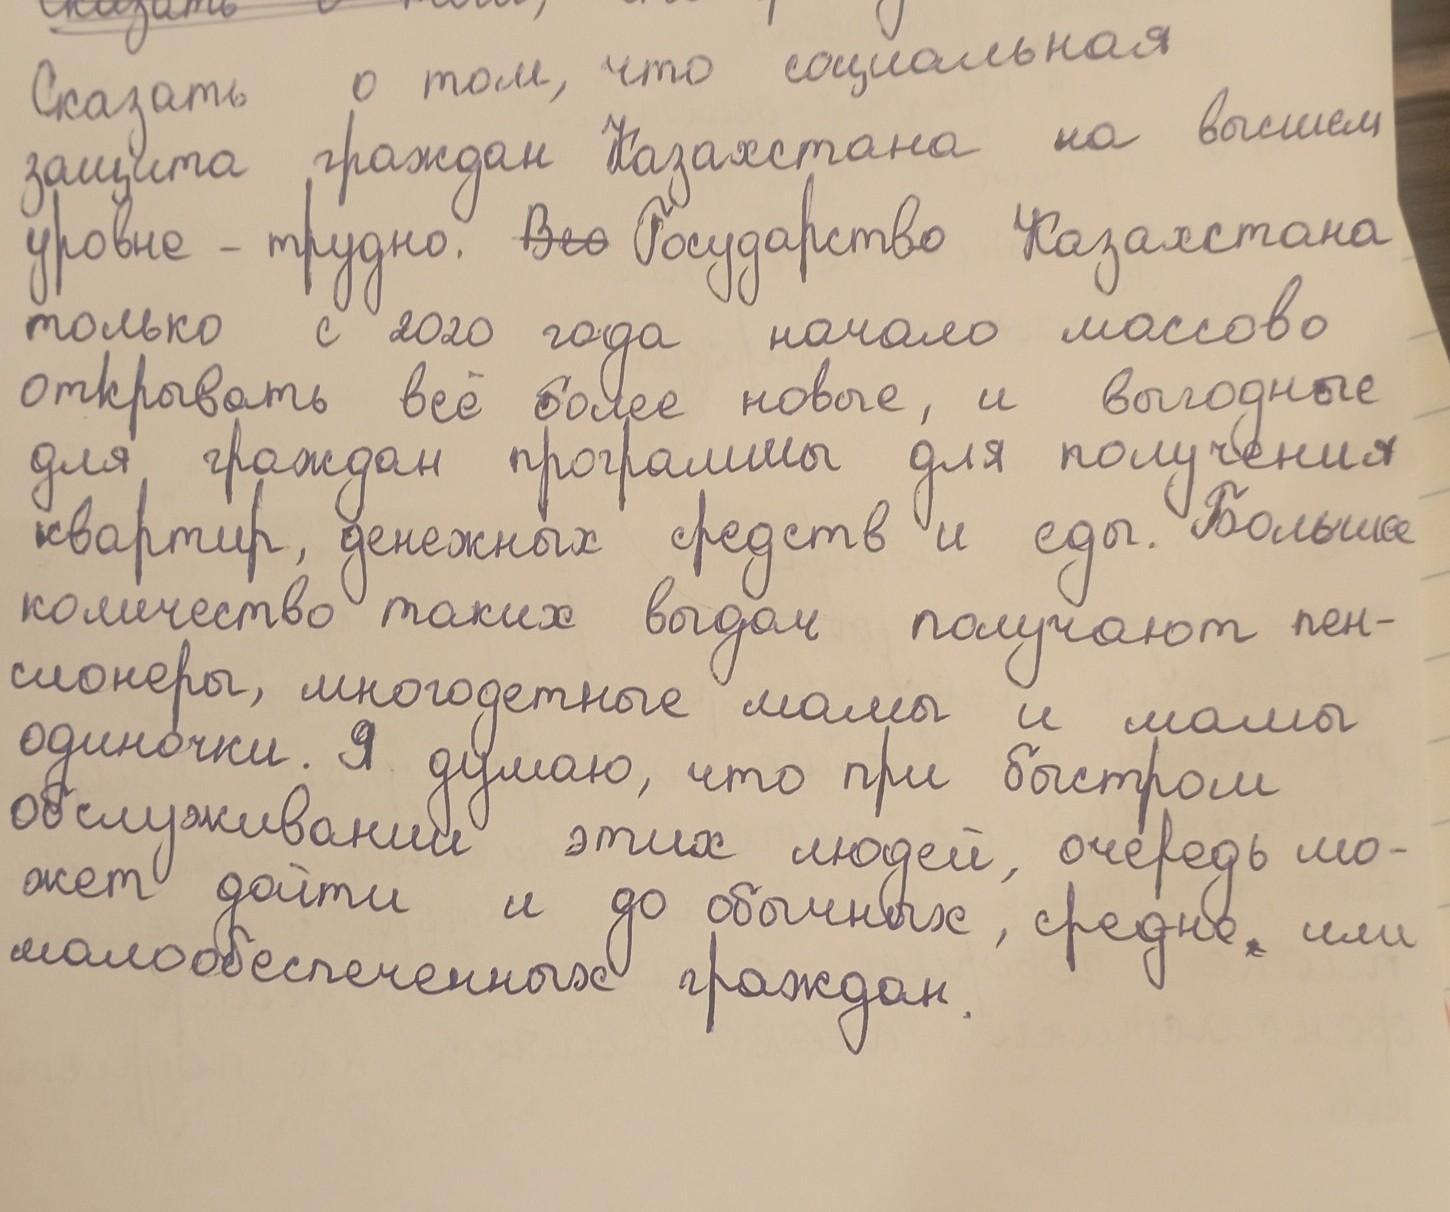 Сказать о том, что
Сказать о том, что социальная
защита граждан Казахстана на высшем
уровне - трудно. Все Государство Казахстана
только с 2020 года начало массово
открывать всё более новые, и выгодные
для граждан программы для получения
квартир, денежных средств и еды. Большее
количество таких выдач получают пен-
сионеры, многодетные мамы и мамы
одиночки. Я думаю, что при быстром
обслуживании этих людей, очередь мо-
жет дойти и до обычных, средне, или
малообеспеченных граждан.